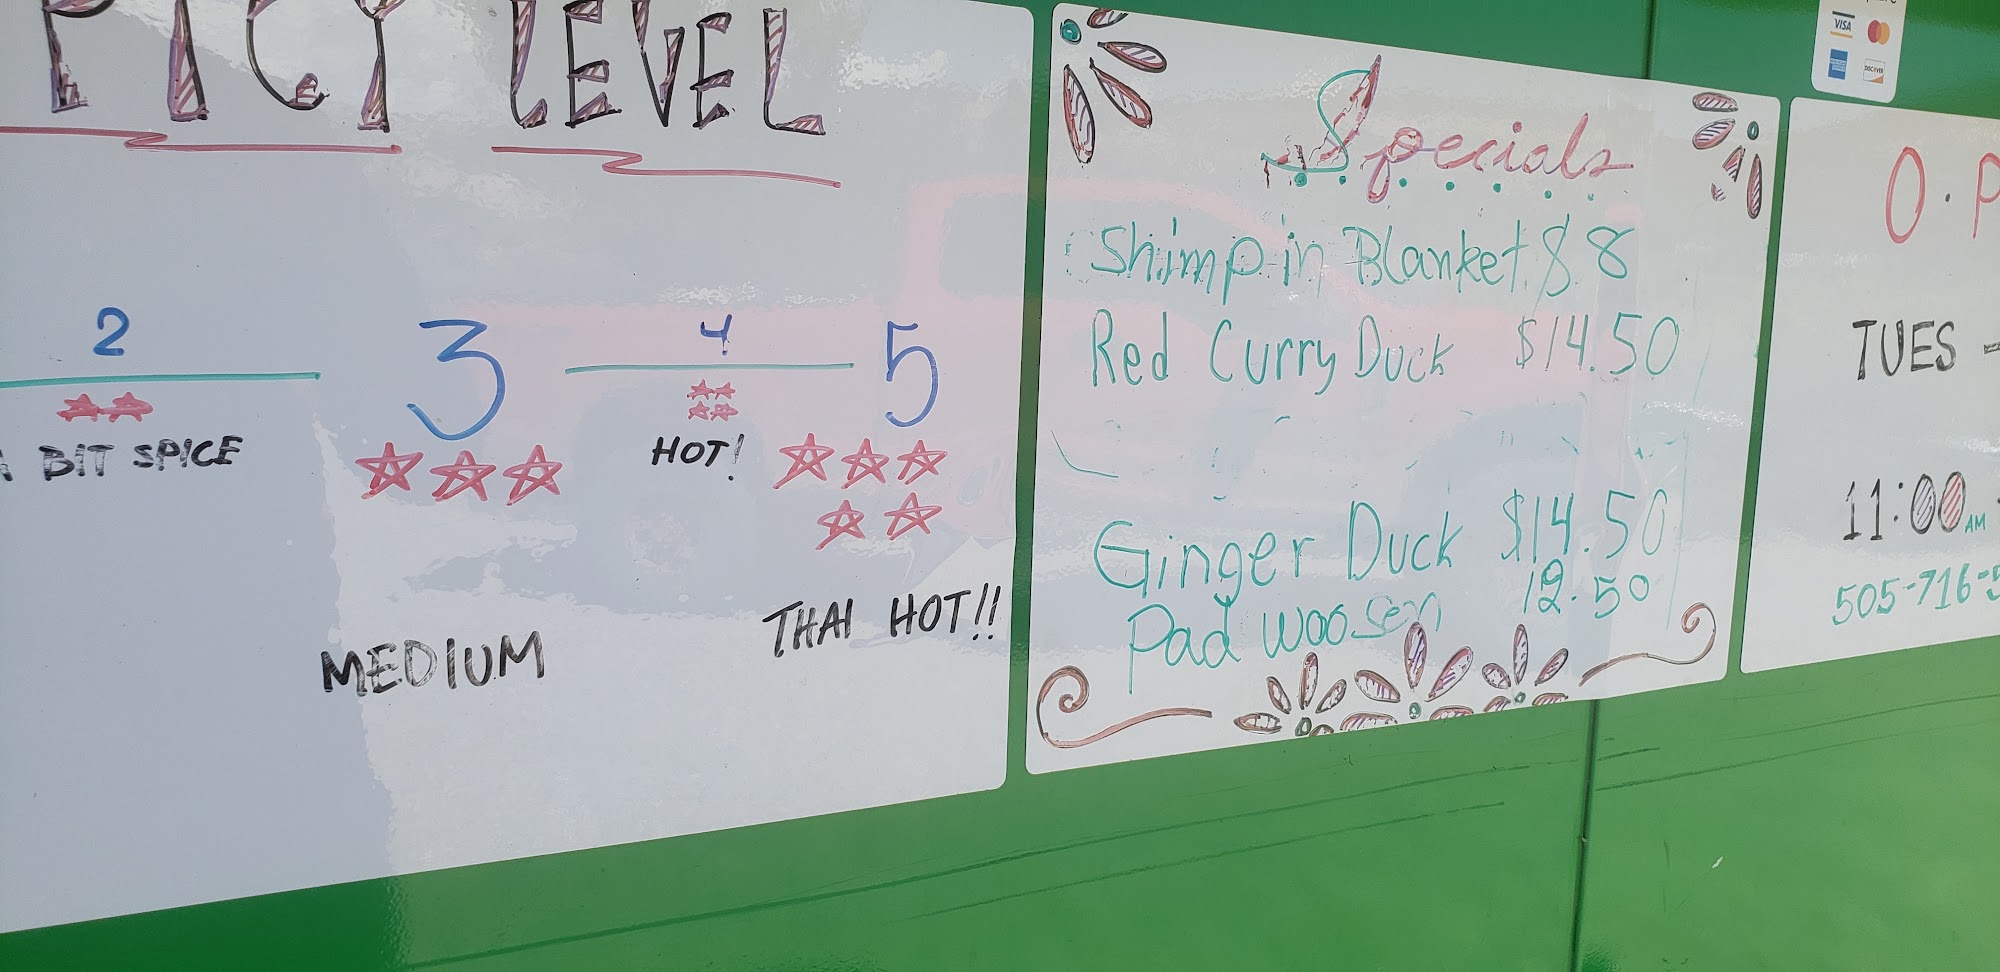 PICY LEVEL
2
3
4
5
A BIT SPICE
HOT!
MEDIUM
THAI HOT!!
Specials
Shimp in Blanket $8
Red Curry Duck $14.50
Ginger Duck $14.50
Pad woosen 12.50
VISA
DISCOVER
O.P
TUES -
11:00 AM
505-716-5